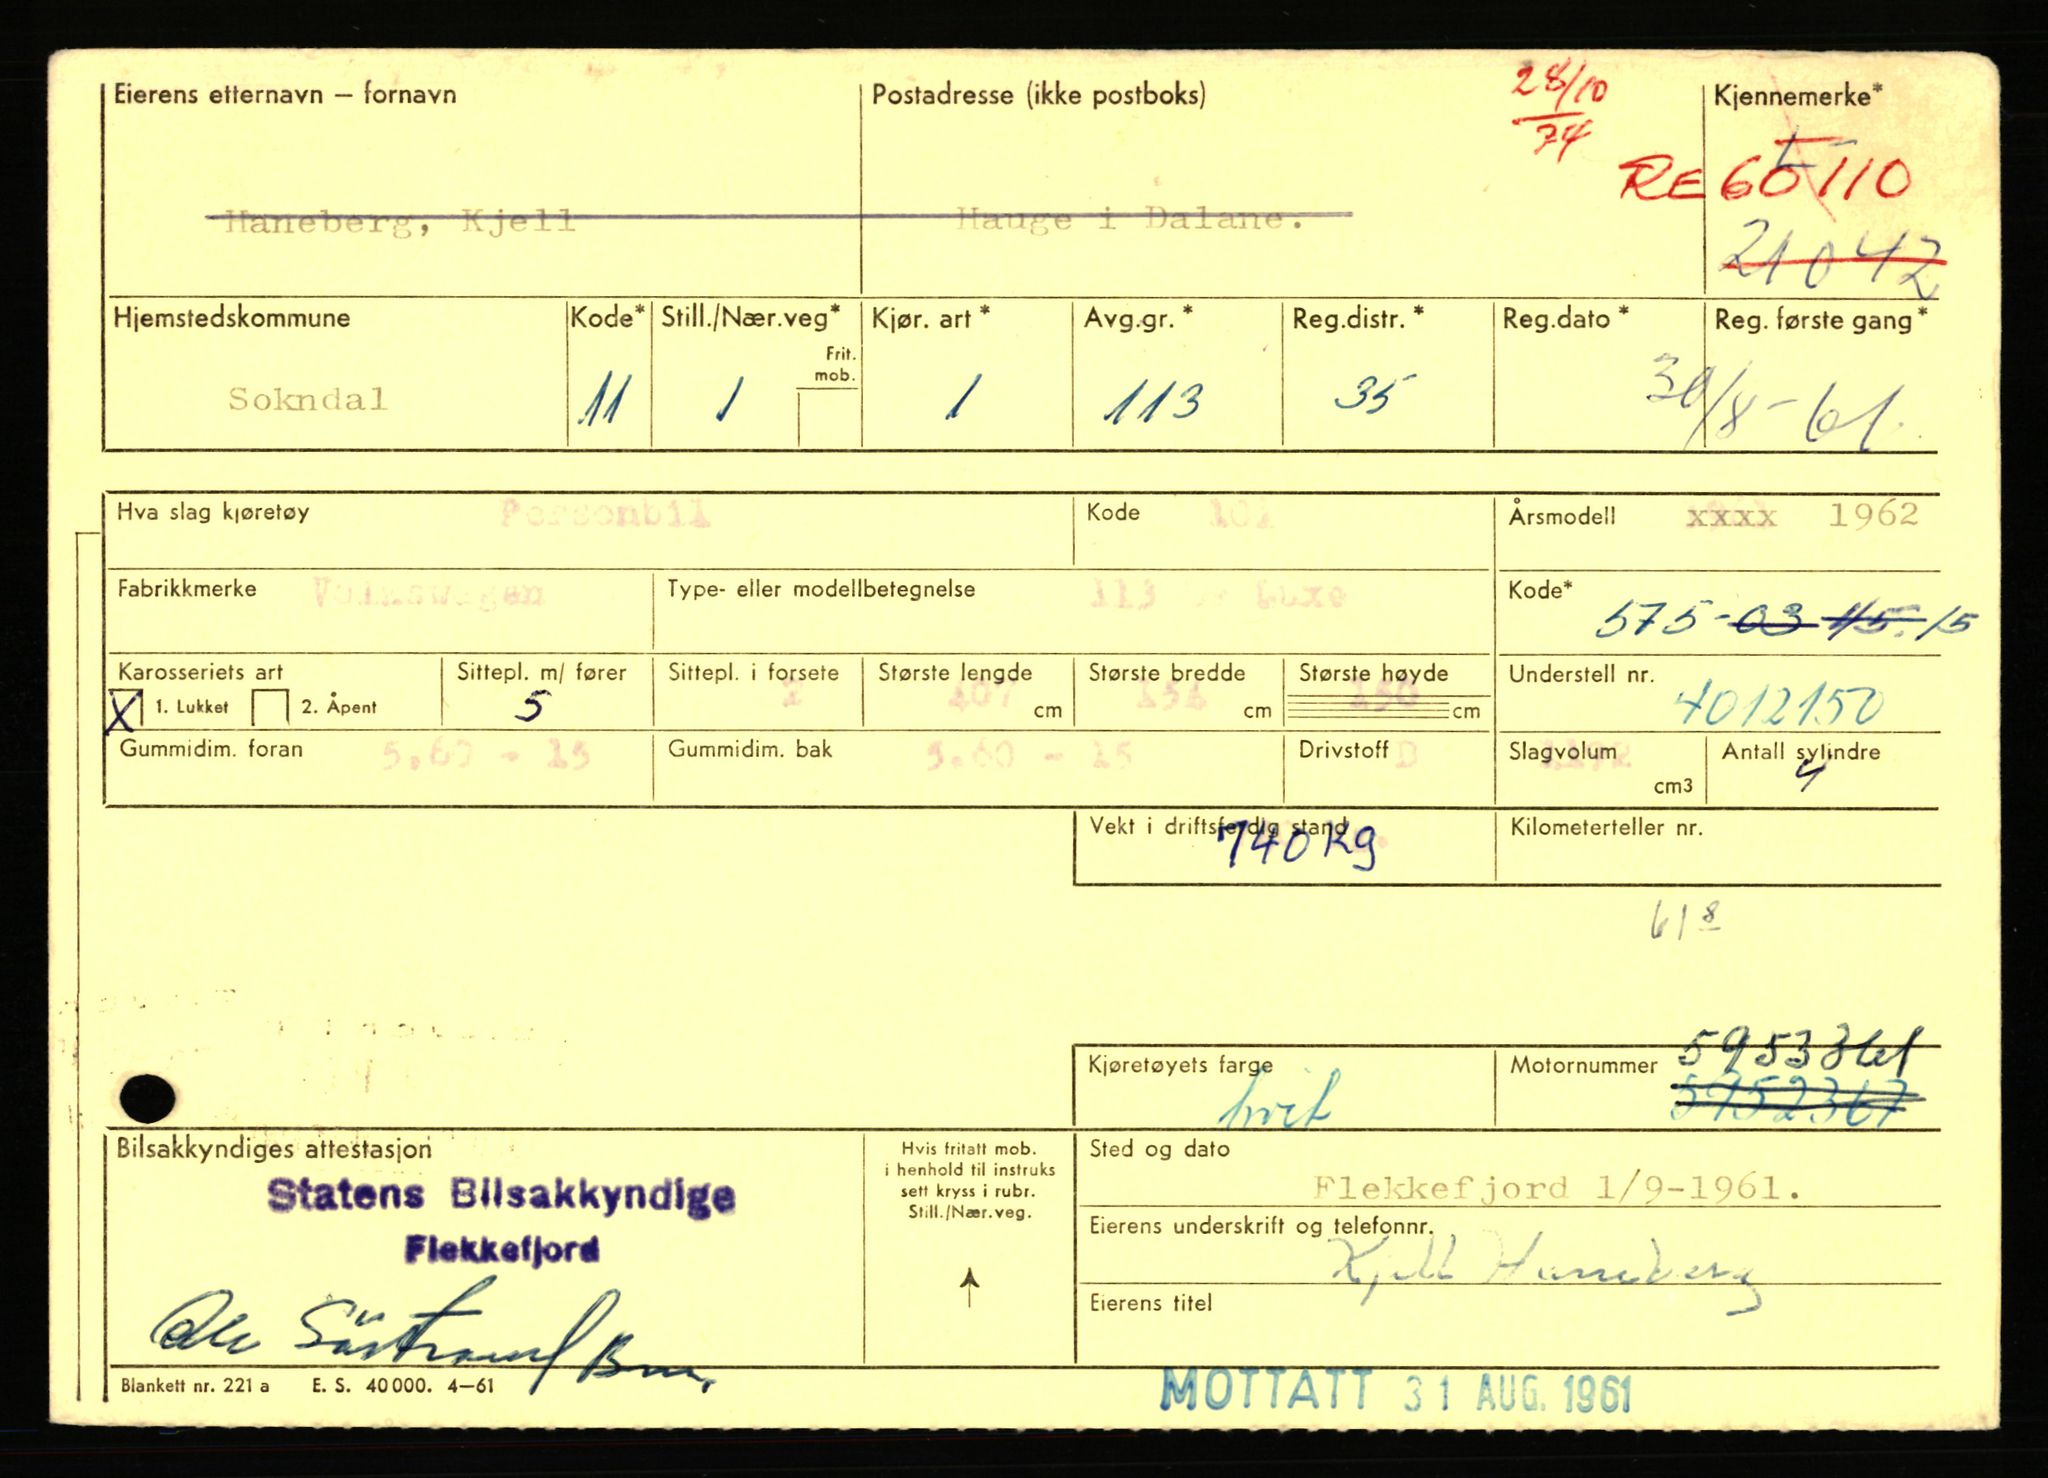 Eierens etternavn – fornavn
Postadresse (ikke postboks)
28/10
74
Kjennemerke*
RE 65110
21042
Haneberg, Kjell
Hauge i Dalane.
Hjemstedskommune
Kode*
Still./Nær.veg*
Kjør. art *
Avg.gr. *
Reg.distr. *
Reg.dato *
Reg. første gang*
Frit.
mob.
Sokndal
11
1
1
113
35
30/8-61.
Hva slag kjøretøy Personbil
Kode 101
Årsmodell xxxx 1962
Fabrikkmerke Volkswagen
Type- eller modellbetegnelse 113 Luxe
Kode*
575-03-115.15
Karosseriets art
Sittepl. m/ fører
Sittepl. i forsete
Største lengde
Største bredde
Største høyde
Understell nr.
X 1. Lukket
2. Åpent
5
2
407 cm
154 cm
150 cm
4012150
Gummidim. foran 5.60 - 15
Gummidim. bak 5.60 - 15
Drivstoff B
Slagvolum 1192
cm3
Antall sylindre
4
Vekt i driftsferdig stand
740 kg
Kilometerteller nr.
61 8
Kjøretøyets farge
hvit
Motornummer
5953361
5952367
Bilsakkyndiges attestasjon
Statens Bilsakkyndige
Flekkefjord
Hvis fritatt mob.
i henhold til instruks
sett kryss i rubr.
Still./Nær.veg.
Sted og dato
Flekkefjord 1/9-1961.
Eierens underskrift og telefonnr.
Kjell Haneberg
Eierens titel
Blankett nr. 221 a E. S. 40 000. 4–61
MOTTATT 31 AUG. 1961